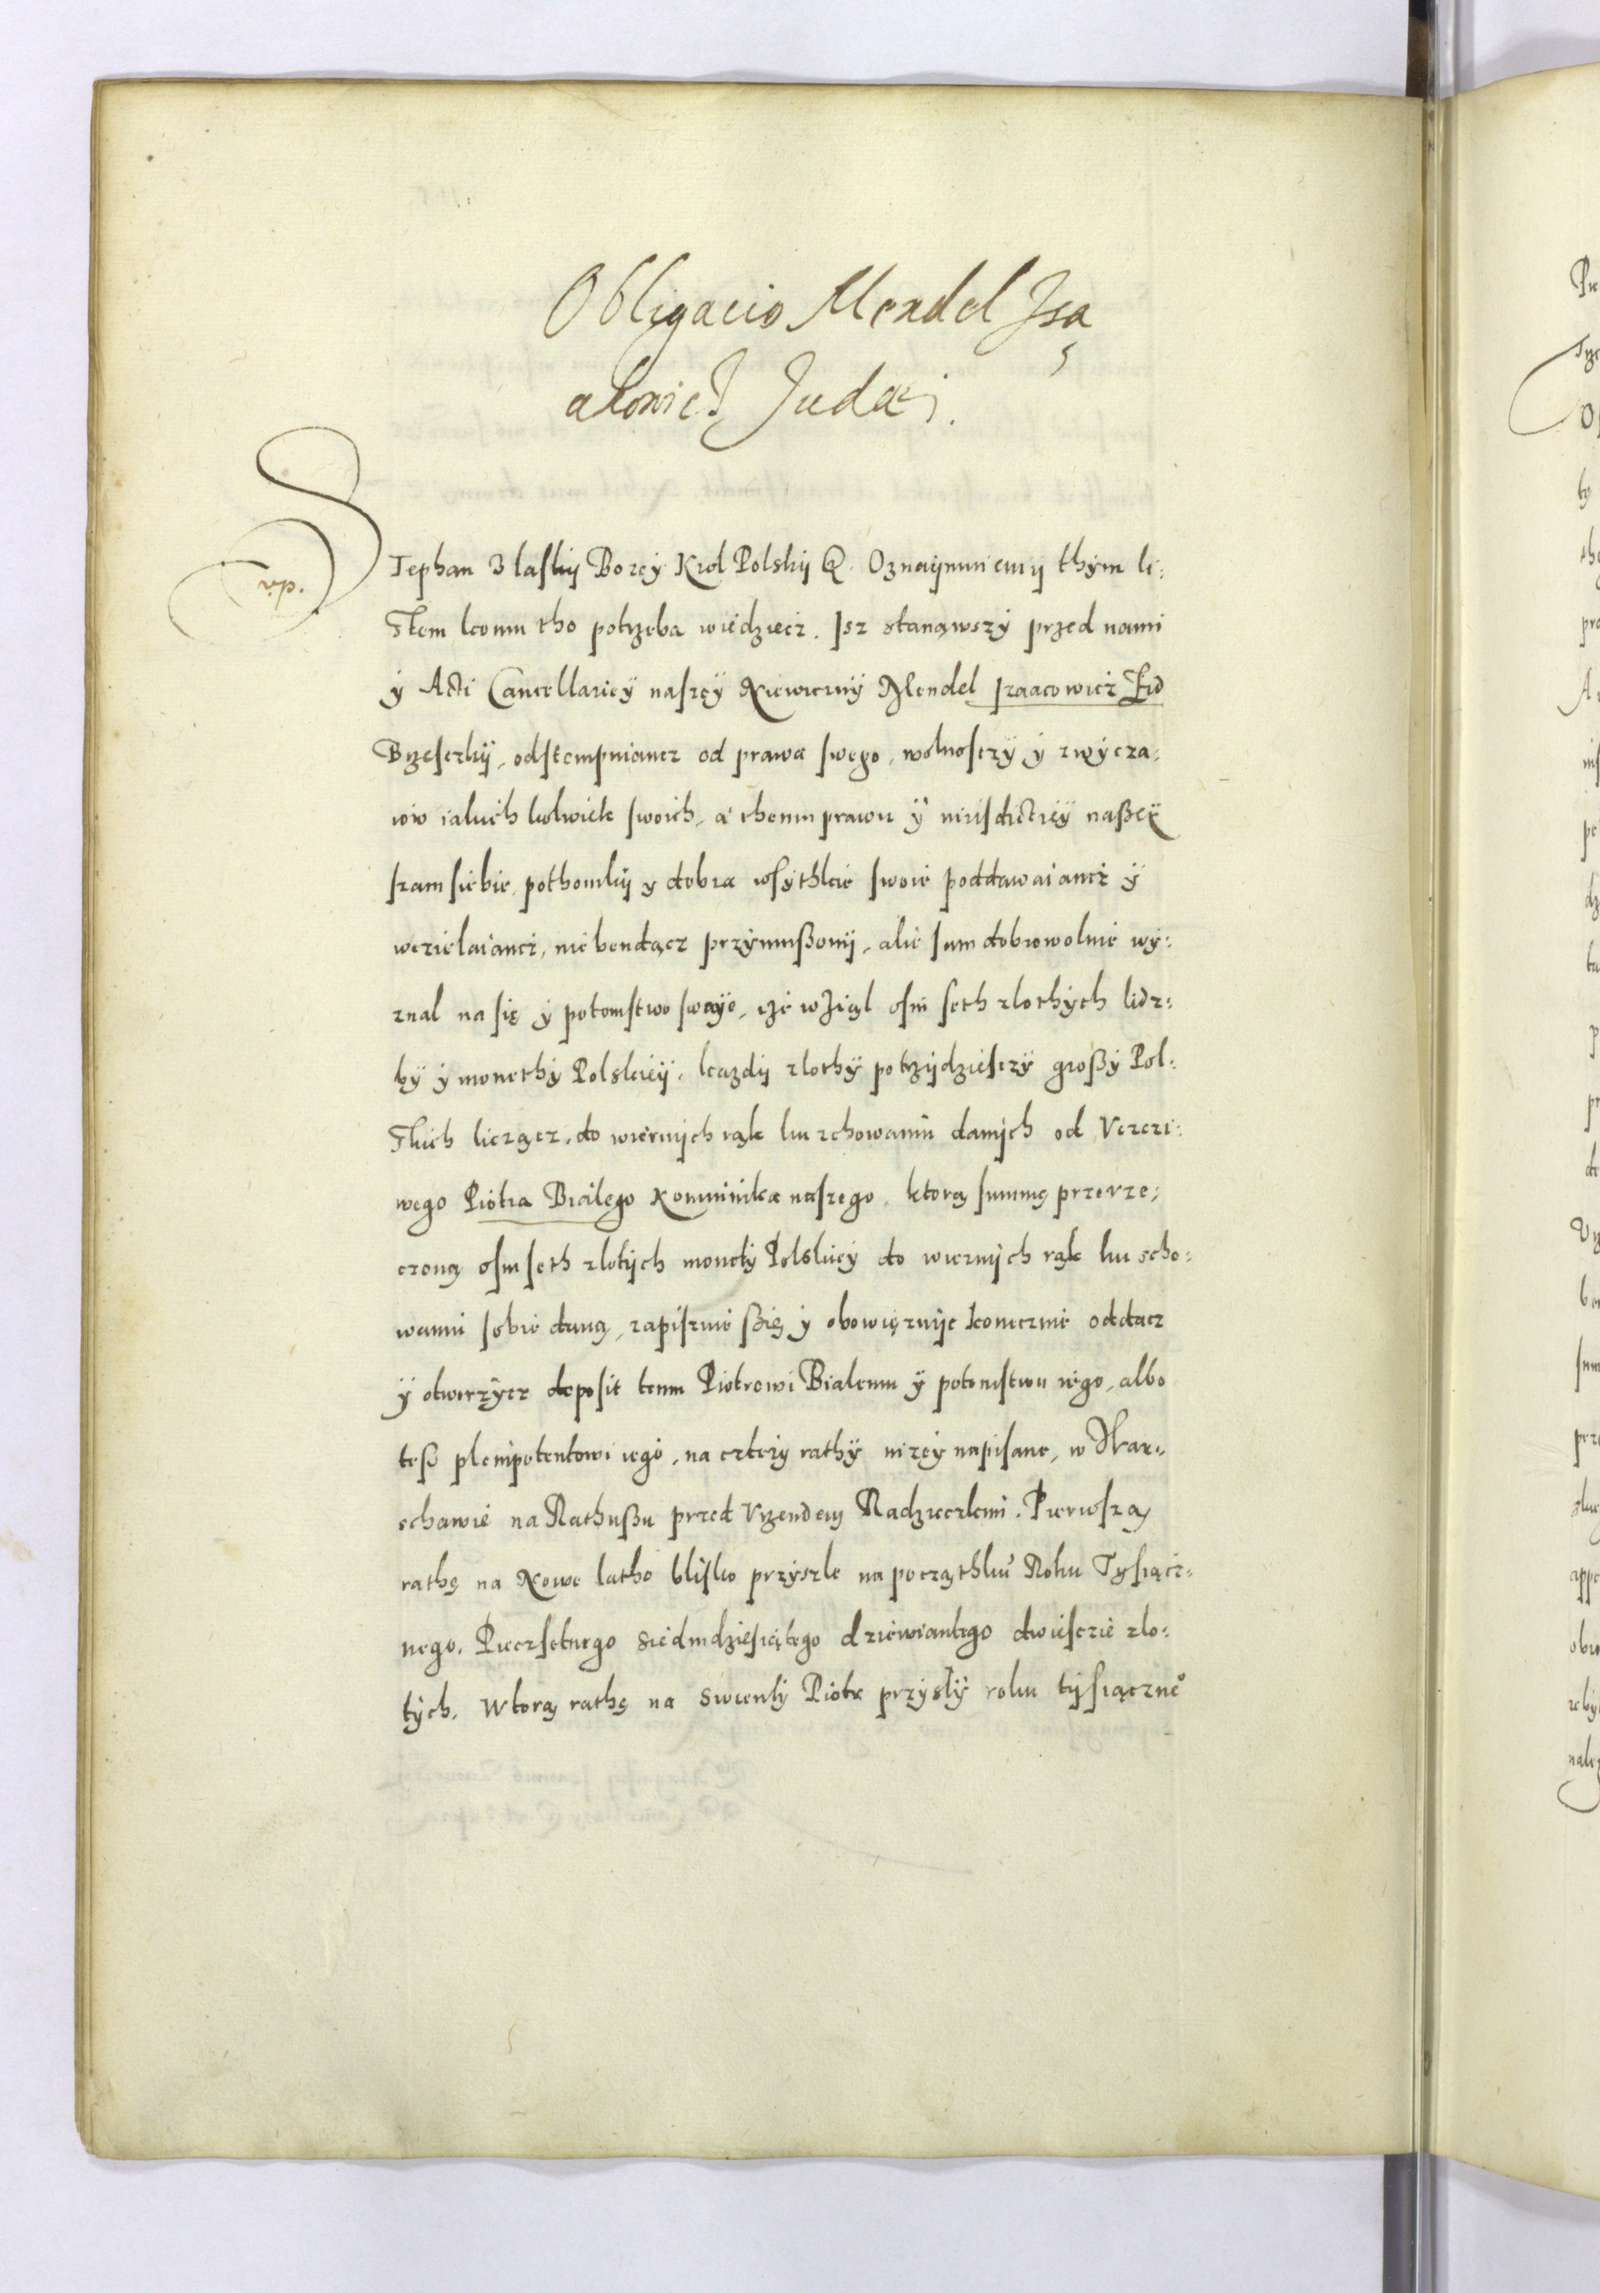 Obligacio Mendel Isa
akowicz Judæi.
Stephan Z laskij Bozeÿ Krol Polskij &. Oznaijmuiemij thÿm li-
stem komu tho potrzeba wiedziecz. Isz stanąwszÿ przed nami
ÿ Acti Cancellarieÿ naszeÿ Niewiernÿ Mendel Izaacowicz Zid
Brzesczkij, odstempuiancz od prawa swego, wolnosczÿ ÿ zwÿcza-
iow iakich kolwiek swoich, a themu prawu ÿ iurisdictieÿ naßeÿ
sam siebie, pothomkij y dobra wsÿthkie swoie poddawaiancz ÿ
wczielaiancz, nie bendącz przÿmußonij, alie sam dobrowolnie wÿ-
znal na się ÿ potomstwo swoÿe, ize wziąl osm seth zlothÿch lidz-
bÿ ÿ monethÿ Polskieÿ, kazdij zlothÿ po trzÿdziesczÿ großÿ Pol-
skich liczącz, do wiernÿch rąk ku zchowaniu danÿch od Vczczi-
wego Piotra Bialego Komornika naszego, ktorą summę przerze-
czoną osmseth zlotÿch monetÿ Polskieÿ do wiernÿch rąk ku scho-
waniu sobie daną, zapisznie ßię ÿ obowięzuije koniecznie oddacz
ÿ otworzÿcz deposit temu Piotrowi Bialemu ÿ potomstwu iego, albo
teß plenipotentowi iego, na czterÿ rathÿ nizeÿ napisane, w War-
schawie na Rathußu przed Vrzendem Radzieczkim. Pierwszą
rathę na Nowe latho blisko przÿszle na począthku Roku Tysiącz-
nego, Pieczsetnego siedmdziesiątego dziewiantego dwiesczie zlo-
tÿch. Wtorą rathę na swientÿ Piotr przÿslÿ roku tÿsiączne°